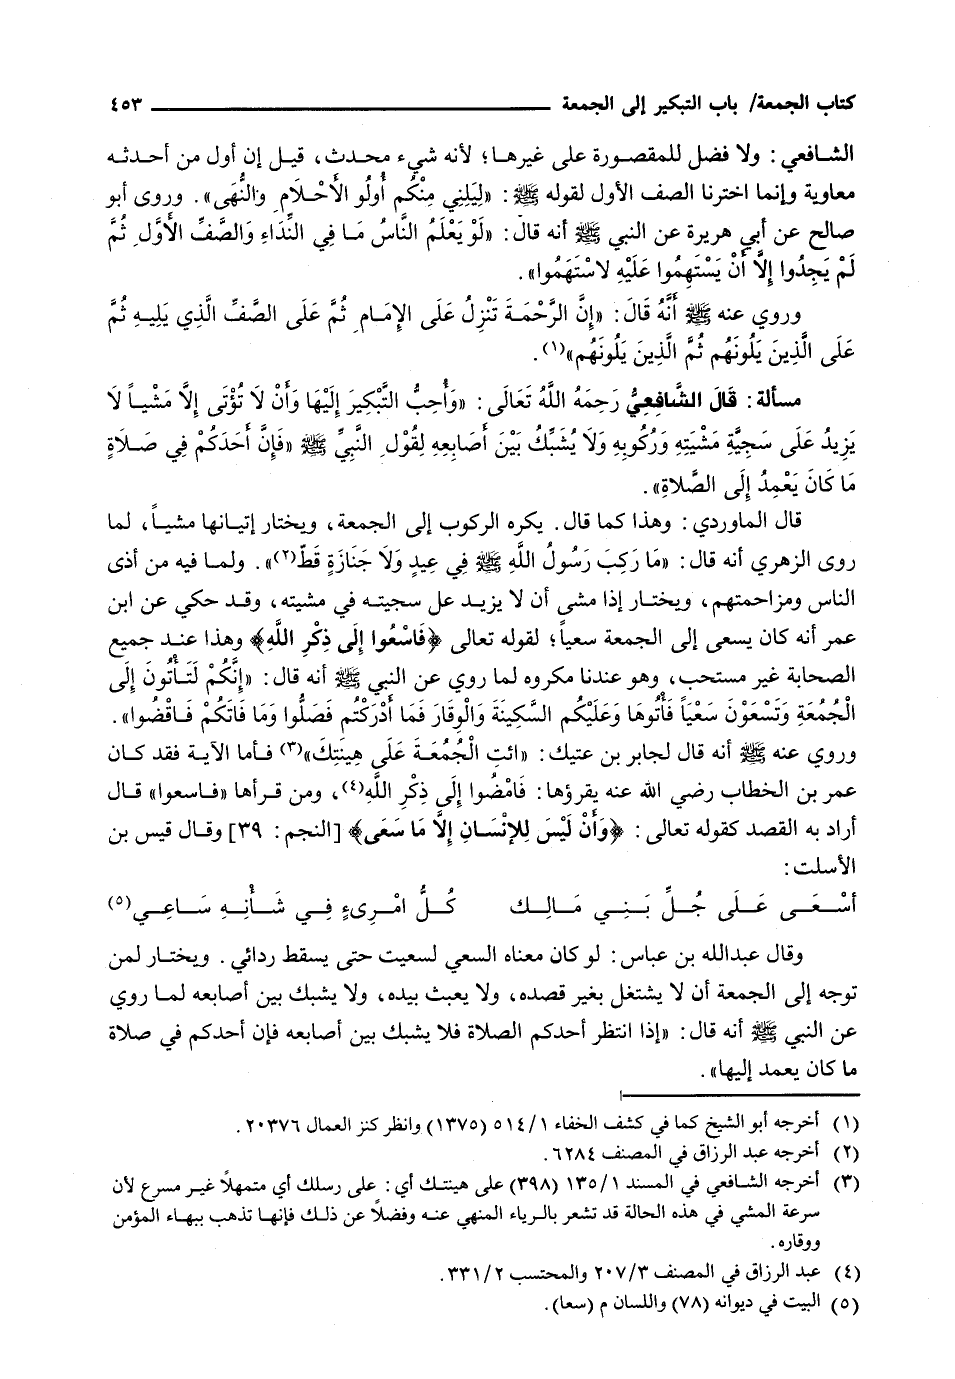 كتاب الجمعة/ باب التبكير إلى الجمعة ٤٥٣
الشافعي: ولا فضل للمقصورة على غيرها؛ لأنه شيء محدث، قيل إن أول من أحدثه
معاوية وإنما اخترنا الصف الأول لقوله ﷺ: «لِيَلِنِي مِنْكُم أُولُو الأَحْلَامِ وَالنُّهَى». وروى أبو
صالح عن أبي هريرة عن النبي ﷺ أنه قال: «لَوْ يَعْلَمُ النَّاسُ مَا فِي النِّدَاءِ وَالصَّفِّ الأَوَّلِ ثُمَّ
لَمْ يَجِدُوا إِلاَّ أَنْ يَسْتَهِمُوا عَلَيْهِ لاسْتَهَمُوا».
وروي عنه ﷺ أَنَّهُ قَالَ: «إِنَّ الرَّحْمَةَ تَنْزِلُ عَلَى الإِمَامِ ثُمَّ عَلَى الصَّفِّ الَّذِي يَلِيهِ ثُمَّ
عَلَى الَّذِينَ يَلُونَهُم ثُمَّ الَّذِينَ يَلُونَهُم»(١).
مسألة: قَالَ الشَّافِعِيُّ رَحِمَهُ اللَّهُ تَعَالَى: «وَأُحِبُّ التَّبْكِيرَ إِلَيْهَا وَأَنْ لَا تُؤْتَى إِلاَّ مَشْياً لَا
يَزِيدُ عَلَى سَجِيَّةِ مَشْيَتِهِ وَرُكُوبِهِ وَلَا يُشَبِّكُ بَيْنَ أَصَابِعِهِ لِقَوْلِ النَّبِيِّ ﷺ «فَإِنَّ أَحَدَكُمْ فِي صَلَاةٍ
مَا كَانَ يَعْمِدُ إِلَى الصَّلَاةِ».
قال الماوردي: وهذا كما قال. يكره الركوب إلى الجمعة، ويختار إتيانها مشياً، لما
روى الزهري أنه قال: «مَا رَكِبَ رَسُولُ اللَّهِ ﷺ فِي عِيدٍ وَلَا جَنَازَةٍ قَطّ(٢)». ولما فيه من أذى
الناس ومزاحمتهم، ويختار إذا مشى أن لا يزيد عل سجيته في مشيته، وقد حكي عن ابن
عمر أنه كان يسعى إلى الجمعة سعياً؛ لقوله تعالى ﴿فَاسْعَوا إِلَى ذِكْرِ اللَّهِ﴾ وهذا عند جميع
الصحابة غير مستحب، وهو عندنا مكروه لما روي عن النبي ﷺ أنه قال: «إِنَّكُمْ لَتَأْتُونَ إِلَى
الْجُمُعَةِ وَتَسْعَوْنَ سَعْياً فَأْتُوهَا وَعَلَيْكُم السَّكِينَةَ وَالْوِقَارَ فَمَا أَدْرَكْتُم فَصَلُّوا وَمَا فَاتَكُمْ فَاقْضُوا».
وروي عنه ﷺ أنه قال لجابر بن عتيك: «ائتِ الْجُمُعَةَ عَلَى هِينَتِكَ»(٣) فأما الآية فقد كان
عمر بن الخطاب رضي الله عنه يقرؤها: فَامْضُوا إِلَى ذِكْرِ اللَّهِ(٤)، ومن قرأها «فاسعوا» قال
أراد به القصد كقوله تعالى: ﴿وَأَنْ لَيْسَ لِلإِنْسَانِ إِلاَّ مَا سَعَى﴾ [النجم: ٣٩] وقال قيس بن
الأسلت:
أَسْعَى عَلَى جُلِّ بَنِي مَالِك كُلُّ امْرِىءٍ فِي شَأْنِهِ سَاعِي(٥)
وقال عبدالله بن عباس: لو كان معناه السعي لسعيت حتى يسقط ردائي. ويختار لمن
توجه إلى الجمعة أن لا يشتغل بغير قصده، ولا يعبث بيده، ولا يشبك بين أصابعه لما روي
عن النبي ﷺ أنه قال: «إذا انتظر أحدكم الصلاة فلا يشبك بين أصابعه فإن أحدكم في صلاة
ما كان يعمد إليها».
(١) أخرجه أبو الشيخ كما في كشف الخفاء ٥١٤/١ (١٣٧٥) وانظر كنز العمال ٢٠٣٧٦.
(٢) أخرجه عبد الرزاق في المصنف ٦٢٨٤.
(٣) أخرجه الشافعي في المسند ١٣٥/١ (٣٩٨) على هينتك أي: على رسلك أي متمهلاً غير مسرع لأن
سرعة المشي في هذه الحالة قد تشعر بالرياء المنهي عنه وفضلاً عن ذلك فإنها تذهب ببهاء المؤمن
ووقاره.
(٤) عبد الرزاق في المصنف ٢٠٧/٣ والمحتسب ٣٣١/٢.
(٥) البيت في ديوانه (٧٨) واللسان م (سعا).